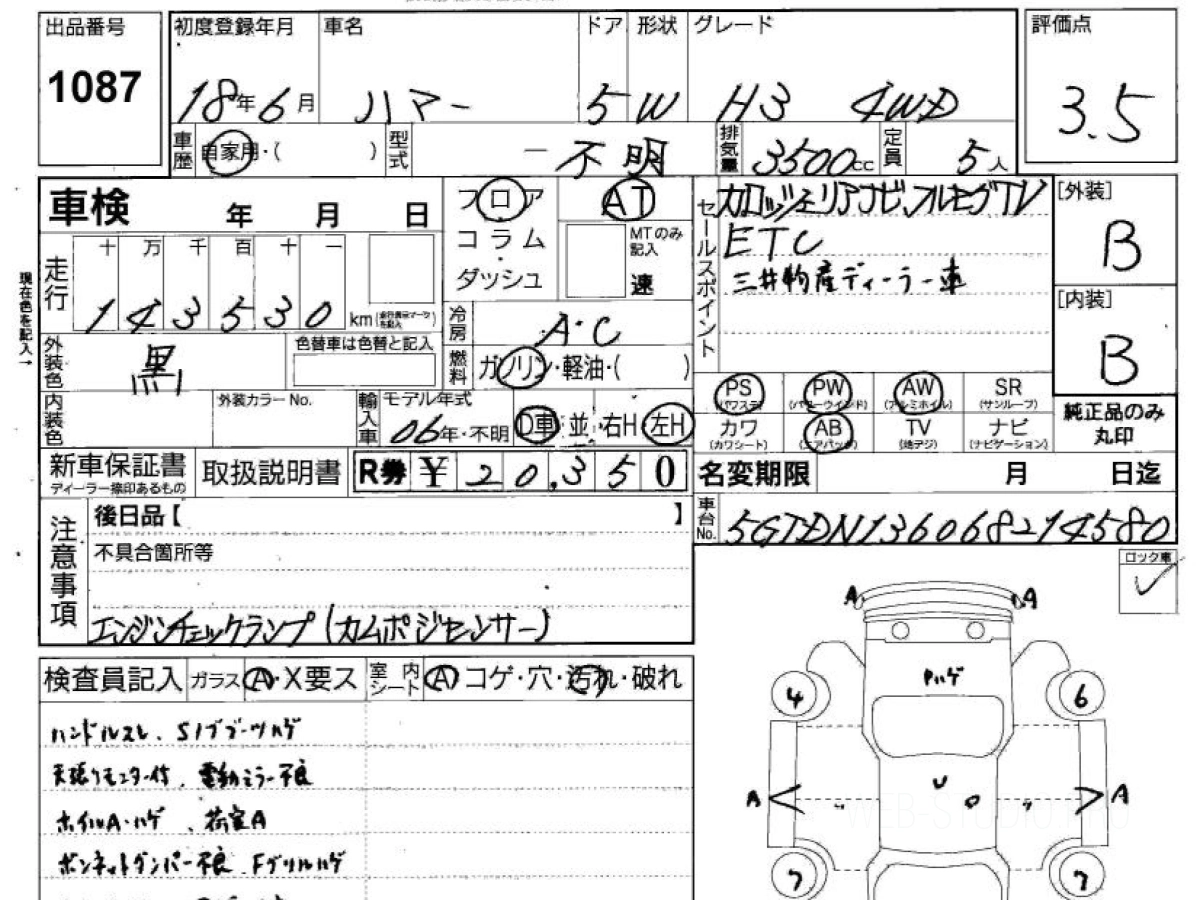 出品番号 初度登録年月 車名 ドア 形状 グレード 評価点
1087 18年6月 ハマー 5 W H3 4WD 3.5
車歴 自家用・( ) 型式 - 不明 排気量 3500cc 定員 5人
車検 年 月 日
フロア AT
コラム MTのみ記入
ダッシュ 速
セールスポイント カロッツェリアナビ、フルセグTV
ETC
三井物産ディーラー車
[外装]
B
[内装]
B
現在色を記入→
走行 十 万 千 百 十 一
143530 km(走行表示マークを記入)
冷房 A・C
外装色 黒 色替車は色替と記入
燃料 ガソリン・軽油・( )
PS (パワステ) PW (パワーウインド) AW (アルミホイル) SR (サンルーフ)
カワ (カワシート) AB (エアバッグ) TV (地デジ) ナビ (ナビゲーション)
純正品のみ
丸印
内装色 外装カラーNo. 輸入車 モデル年式
06年・不明 D車・並 右H・左H
新車保証書 ディーラー捺印あるもの 取扱説明書 R券 ¥20,350
名変期限 月 日迄
車台No. 5GTDN136068214580
注意事項 後日品【 】
不具合箇所等
エンジンチェックランプ(カムポジセンサー)
ロック車
検査員記入 ガラス A・X要ス 室内シート A コゲ・穴・汚れ・破れ
ハンドルスレ、
天張りモニター付、電動ミラー不良
ホイルA・ハゲ、荷室A
ボンネットダンパー不良、Fグリルハゲ
A A
ハゲ
4 6
A A
7 7
WEB-STUDIO.PRO